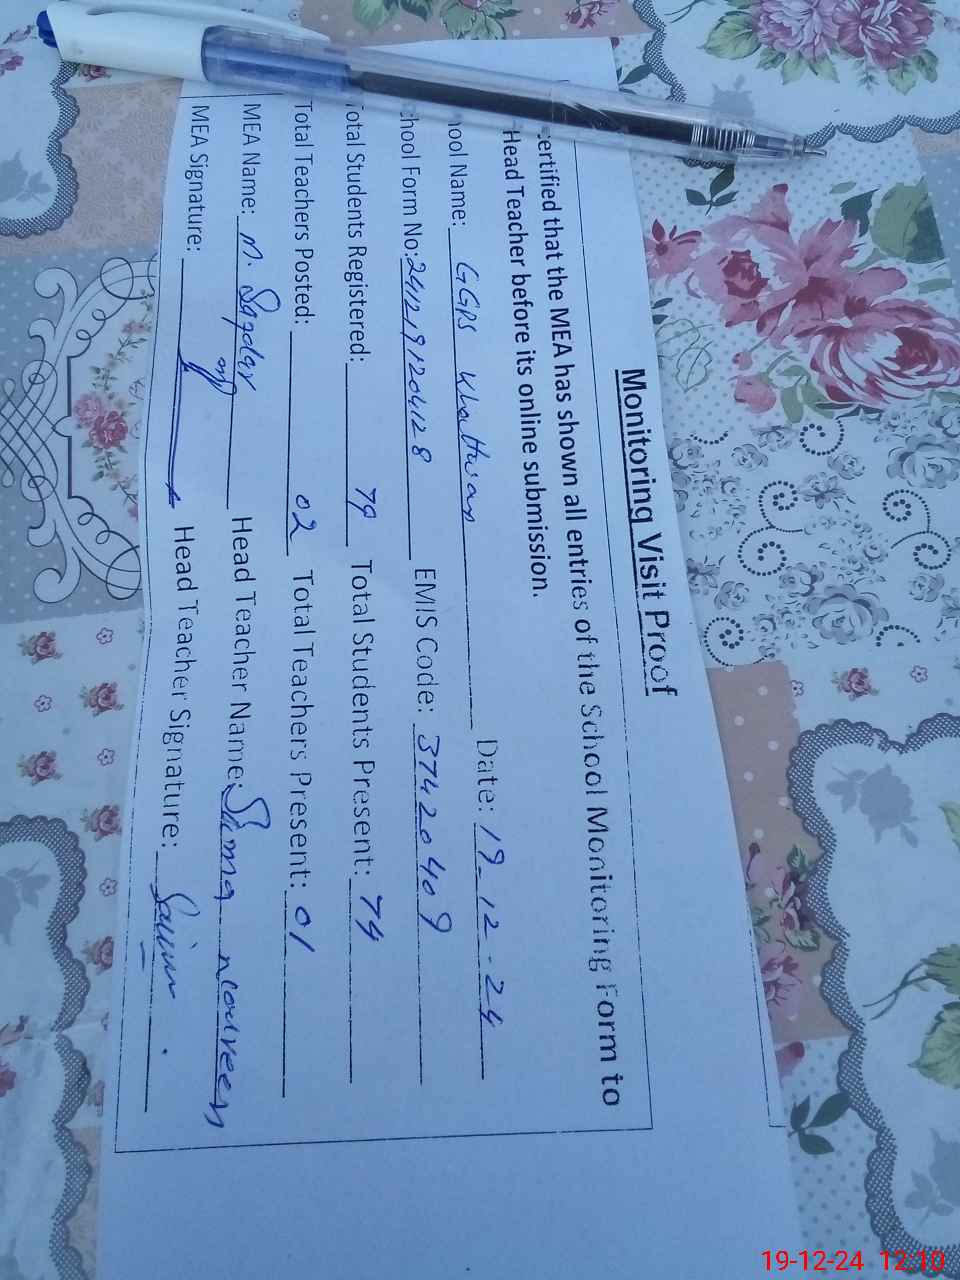 Monitoring Visit Proof
ertified that the MEA has shown all entries of the School Monitoring Form to
Head Teacher before its online submission.
ool Name: GGPS Khattwan Date: 19-12-24
hool Form No: 2412191204128 EMIS Code: 37420409
Total Students Registered: 79 Total Students Present: 74
Total Teachers Posted: 02 Total Teachers Present: 01
MEA Name: M. Head Teacher Name: Sima noureen
MEA Signature: Head Teacher Signature:
19-12-24 12:10